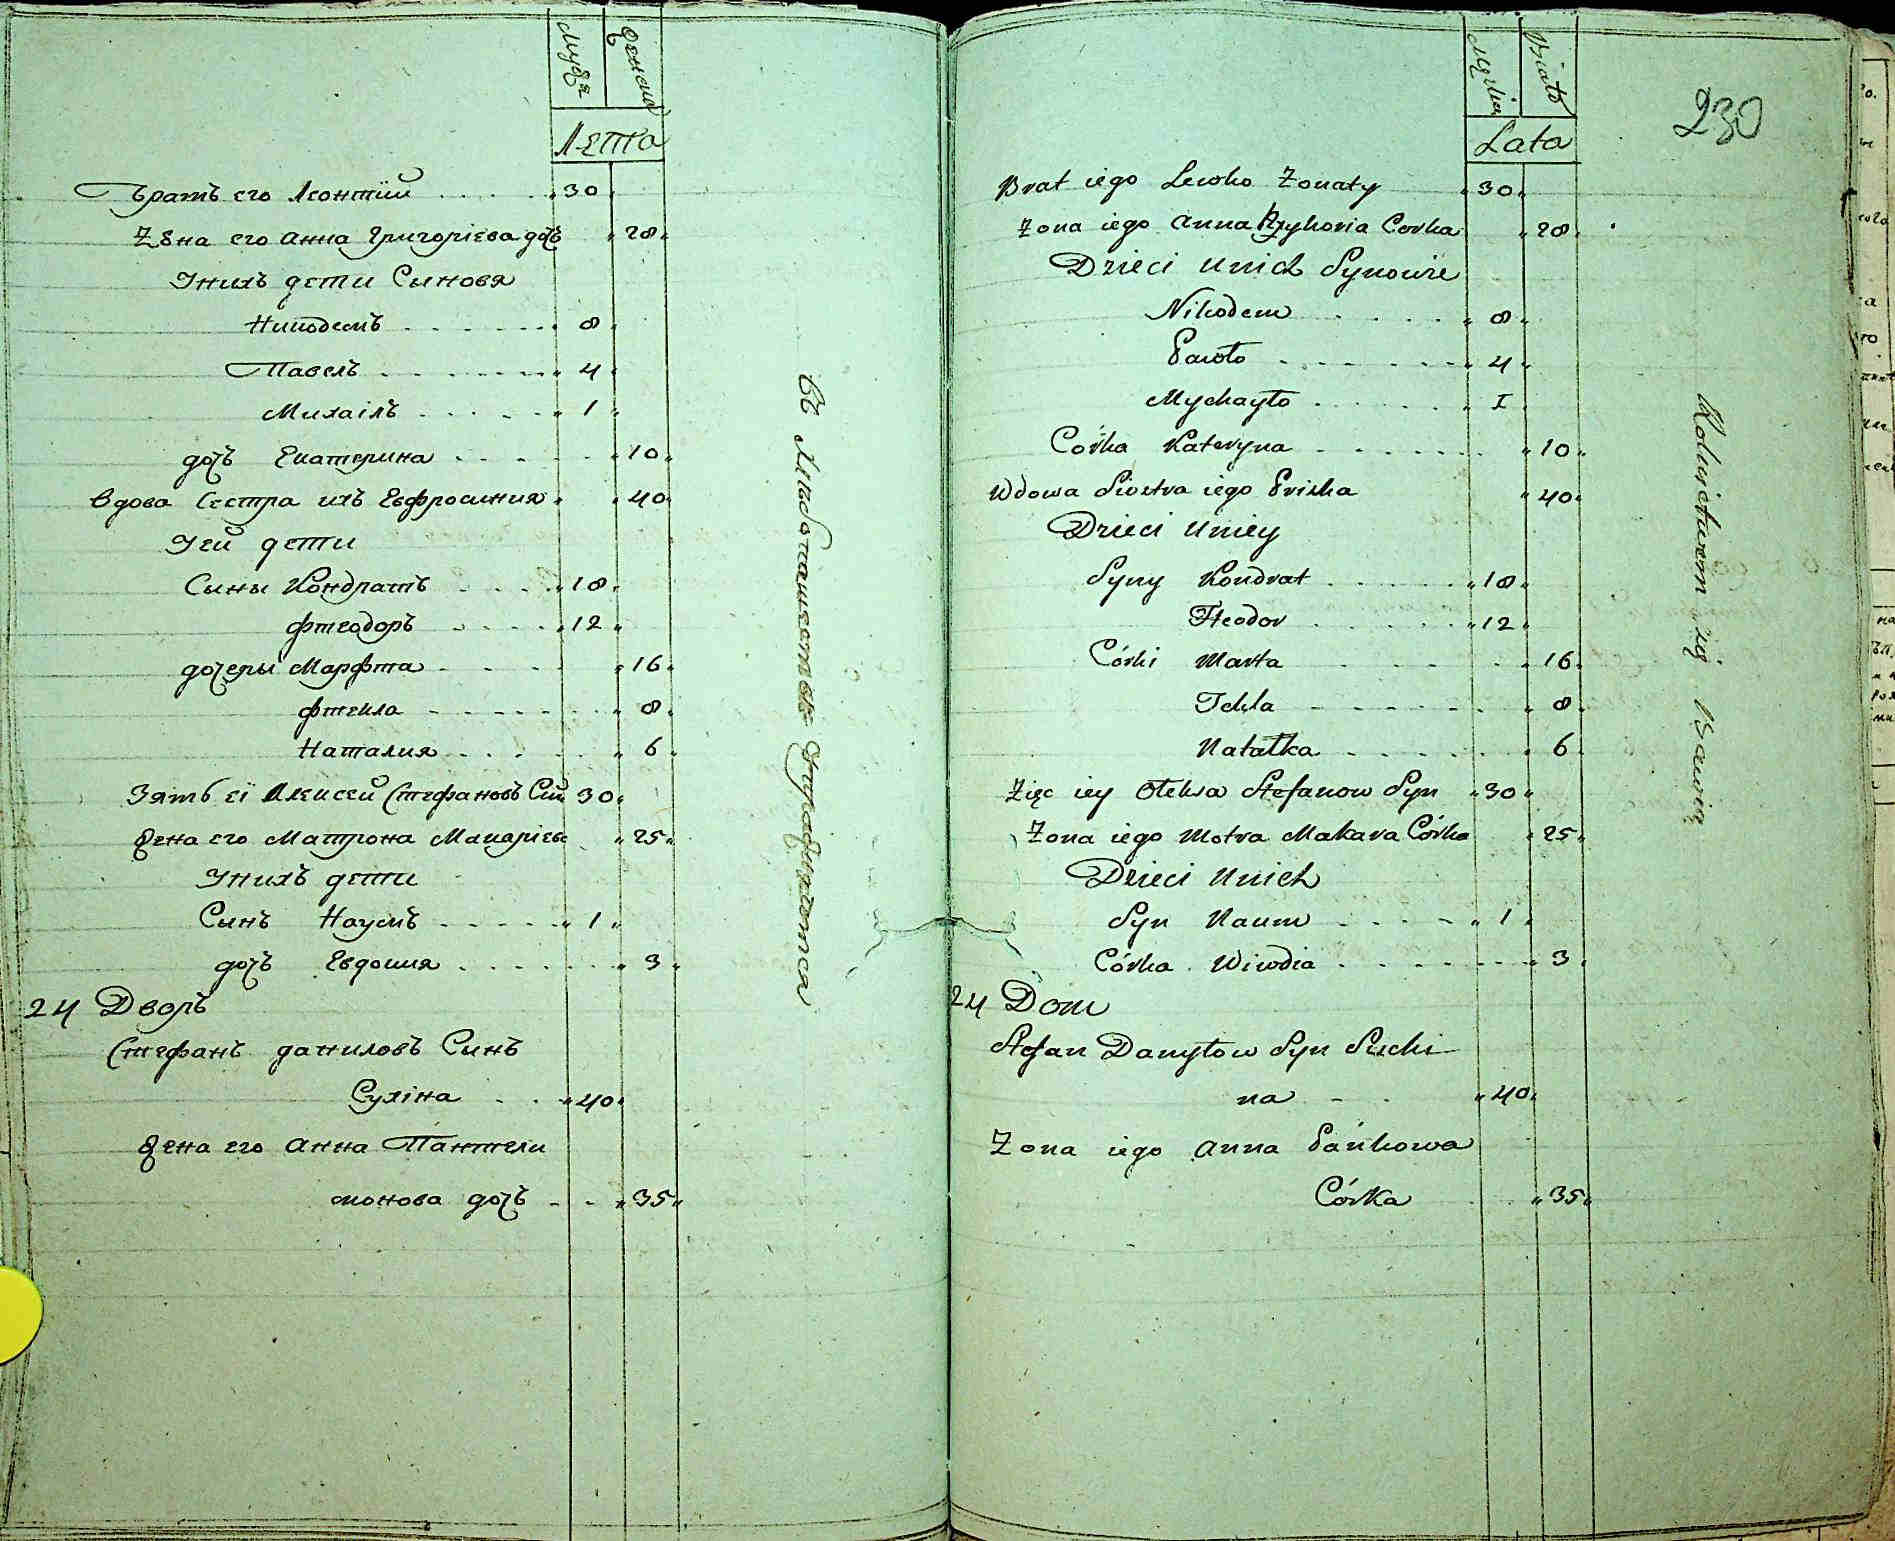 Мужя Женска
Лета
Братъ его Леонтiй 30
Жена его Анна Григорiева дочъ 28
Унихъ дети Сыновя
Никодемъ 8
Павелъ 4
Михаiлъ 1
дочъ Екатерина 10
Вдова Сестра ихъ Евфросиния 40
Уей дети
Сыны Кондратъ 18
Фтеодоръ 12
дочеры Марфта 16
Фтекла 8
Наталия 6
Зять её Алексей Стефановъ Сын 30
Жена его Матрона Макарiев 25
Унихъ дети
Сынъ Наумъ 1
дочъ Евдокия 3
24 Дворъ
Стефанъ даниловъ Сынъ
Сухiна 40
Жена его Анна Пантели
монова дочъ 35
въ Хлебопашестве упражняются
230
Męzka Biało
Lata
Brat iego Lewko Zonaty 30
Zona iego Anna Hryhoria Corka 28
Dzieci Unich Synowie
Nikodem 8
Pawło 4
Mychayło I
Córka Kateryna 10
Wdowa Siostra iego Priska 40
Dzieci Uniey
Syny Kondrat 18
Fteodor 12
Córki Marta 16
Tekla 8
Natałka 6
Zięc iey Ołeksa Stefanow Syn 30
Zona iego Motra Makara Córka 25
Dzieci Unich
Syn Naum 1
Córka Wiwdia 3
24 Dom
Stefan Danyłow Syn Suchi
na 40
Zona iego Anna Pańkowa
Córka 35
Rolnictwem się Bawią